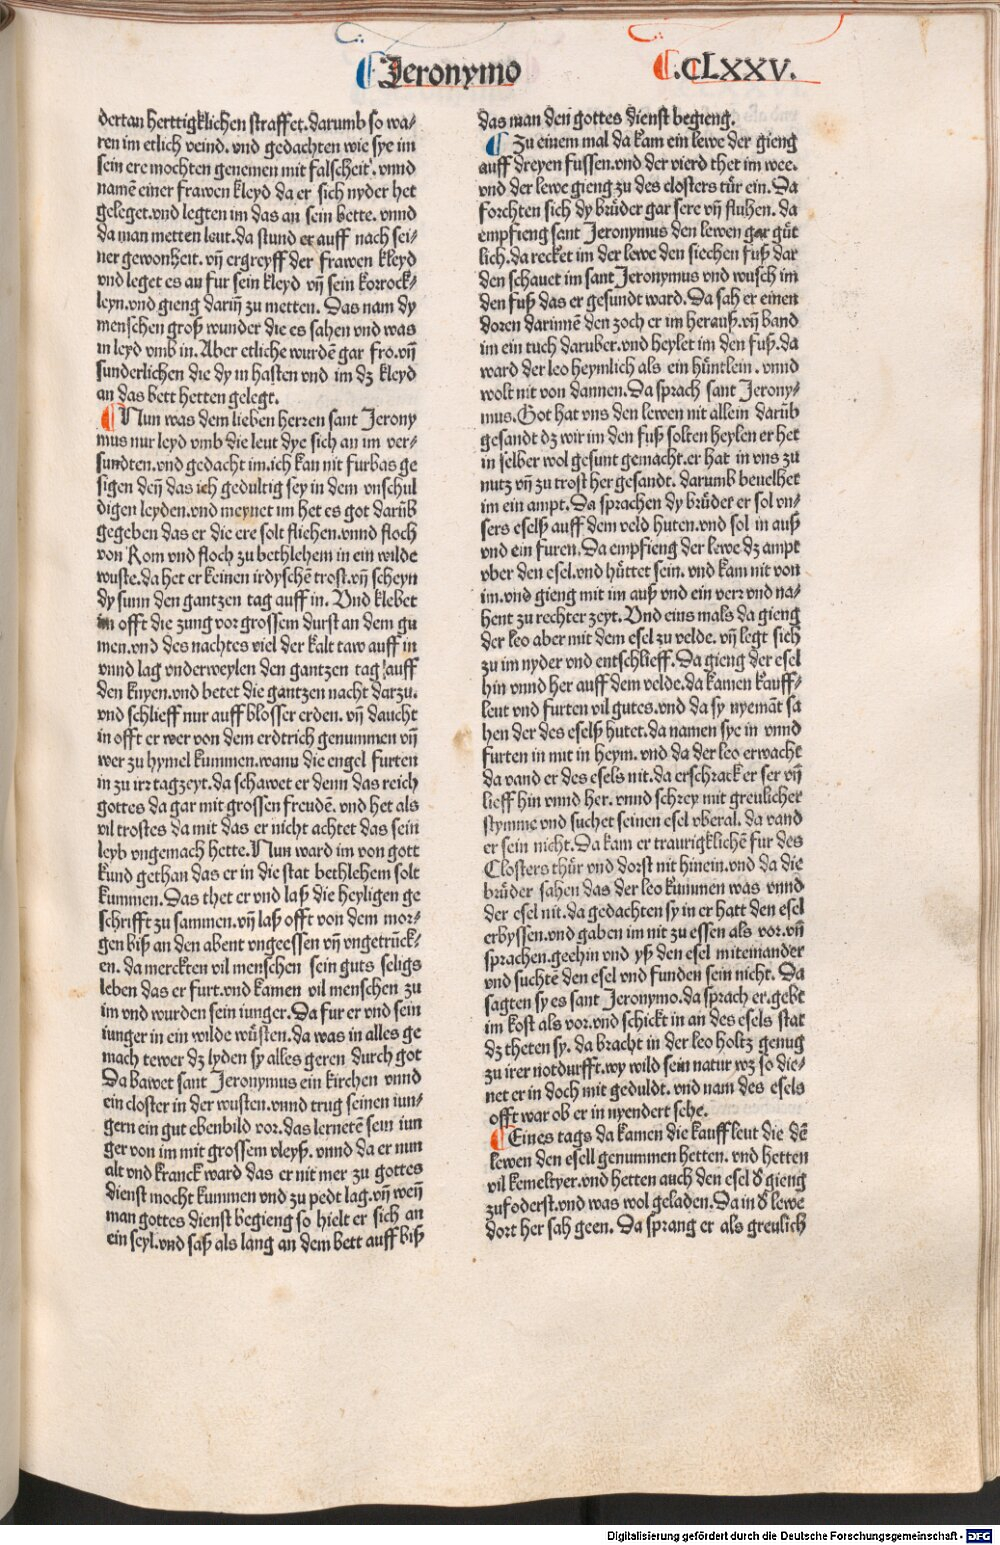 Jeronymo
.CLXXV.
dertan herttigklichen straffet.darumb so wa⸗
ren im etlich veind. vnd gedachten wie sye im
sein ere mochten genemen mit falscheit. vnnd
namē einer frawen kleyd da er sich nyder het
geleget.vnd legten im das an sein bette. vnnd
da man metten leut.da stund er auff nach sei⸗
ner gewonheit. vñ ergreyff der frawen kleyd
vnd leget es an fur sein kleyd vñ sein korrock⸗
leyn.vnd gieng dariñ zu metten. Das nam dy
menschen groß wunder die es sahen vnd was
in leyd vmb in. Aber etliche wurdē gar fro.vñ
sunderlichen die dy in hasten vnd im dz kleyd
an das bett hetten gelegt.
Nun was dem lieben herren sant Jerony
mus nur leyd vmb die leut dye sich an im ver⸗
sundten.vnd gedacht im.ich kan nit furbas ge
sigen deñ das ich gedultig sey in dem vnschul
digen leyden.vnd meynet im het es got darüb
gegeben das er die ere solt fliehen.vnnd floch
von Rom vnd floch zu bethlehem in ein wilde
wuste.da het er keinen irdyschē trost.vñ scheyn
dy sunn den gantzen tag auff in. Vnd klebet
im offt die zung vor grossem durst an dem gu
men.vnd des nachtes viel der kalt taw auff in
vnnd lag vnderweylen den gantzen tag auff
den knyen.vnd betet die gantzen nacht darzu.
vnd schlieff nur auff blosser erden. vñ daucht
in offt er wer von dem erdtrich genummen vñ
wer zu hymel kummen.wann die engel furten
in zu irr tagzeyt.da schawet er denn das reich
gottes da gar mit grossen freudē. vnd het als
vil trostes da mit das er nicht achtet das sein
leyb vngemach hette. Nun ward im von gott
kund gethan das er in die stat bethlehem solt
kummen. Das thet er vnd laß die heyligen ge
schrifft zu sammen.vñ laß offt von dem mor⸗
gen biß an den abent vngeessen vñ vngetrūck⸗
en. da merckten vil menschen sein guts seligs
leben das er furt.vnd kamen vil menschen zu
im vnd wurden sein iunger. Da fur er vnd sein
iunger in ein wilde wüsten.da was in alles ge
mach tewer dz lyden sy alles geren durch got
Da bawet sant Jeronymus ein kirchen vnnd
ein closter in der wusten.vnnd trug seinen iun⸗
gern ein gut ebenbild vor.das lernetē sein iun
ger von im mit grossem vleyß. vnnd da er nun
alt vnd kranck ward das er nit mer zu gottes
dienst mocht kummen vnd zu pedt lag.vñ weñ
man gottes dienst begieng so hielt er sich an
ein seyl.vnd saß als lang an dem bett auff biß
das man den gottes dienst begieng.
Zu einem mal da kam ein lewe der gieng
auff dreyen fussen.vnd der vierd thet im wee.
vnd der lewe gieng zu des closters tür ein. Da
forchten sich dy brüder gar sere vñ fluhen. da
empfieng sant Jeronymus den lewen gar güt
lich.da recket im der lewe den siechen fuß dar
den schauet im sant Jeronymus vnd wusch im
den fuß das er gesundt ward. Da sah er einen
doren darinnē den zoch er im herauß.vñ band
im ein tuch daruber.vnd heylet im den fuß.da
ward der leo heymlich als ein hüntlein. vnnd
wolt nit von dannen. Da sprach sant Jerony⸗
mus.Got hat vns den lewen nit allein darüb
gesandt dz wir im den fuß solten heylen er het
in selber wol gesunt gemacht.er hat in vns zu
nutz vñ zu trost her gesandt. darumb beuelhet
im ein ampt. Da sprachen dy brüder er sol vn⸗
sers eselß auff dem veld huten.vnd sol in auß
vnd ein furen. Da empfieng der lewe dz ampt
vber den esel.vnd hüttet sein. vnd kam nit von
im.vnd gieng mit im auß vnd ein verr vnd na⸗
hent zu rechter zeyt. Vnd eins mals da gieng
der leo aber mit dem esel zu velde. vñ legt sich
zu im nyder vnd entschlieff. Da gieng der esel
hin vnnd her auff dem velde.da kamen kauff⸗
leut vnd furten vil gutes.vnd da sy nyemāt sa
hen der des eselß hutet.da namen sye in vnnd
furten in mit in heym. vnd da der leo erwacht
da vand er des esels nit.da erschrack er ser vñ
lieff hin vnnd her. vnnd schrey mit greulicher
stymme vnd suchet seinen esel vberal. da vand
er sein nicht. Da kam er traurigklichē fur des
Closters thür vnd dorst nit hinein.vnd da die
brüder sahen das der leo kummen was vnnd
der esel nit.da gedachten sy in er hatt den esel
erbyssen.vnd gaben im nit zu essen als vor.vñ
sprachen.geehin vnd yß den esel miteinander
vnd suchtē den esel vnd funden sein nicht. Da
sagten sy es sant Jeronymo.da sprach er.gebt
im kost als vor.vnd schickt in an des esels stat
dz theten sy. da bracht in der leo holtz genug
zu irer notdurfft.wy wild sein natur wz so die⸗
net er in doch mit geduldt. vnd nam des esels
offt war ob er in nyendert sehe.
Eines tags da kamen die kauffleut die dē
lewen den esell genummen hetten. vnd hetten
vil kemeltyer.vnd hetten auch den esel d̕ gieng
zufoderst.vnd was wol geladen. Da in d̕ lewe
dort her sah geen. Da sprang er als greulich
Digitalisierung gefördert durch die Deutsche Forschungsgemeinschaft - DFG